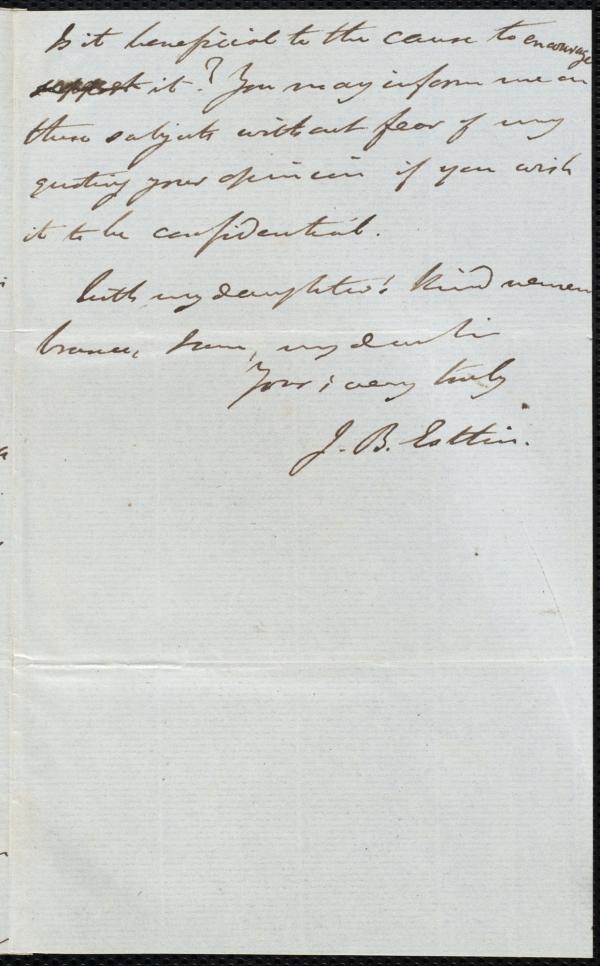 Is it beneficial to the cause to encourage
support it? You may inform me on
these subjects without fear of my
quoting your opinion if you wish
it to be confidential.
With my daughter's kind remem
brance, I am, my dear Sir
Yours very truly
J. B. Estlin.